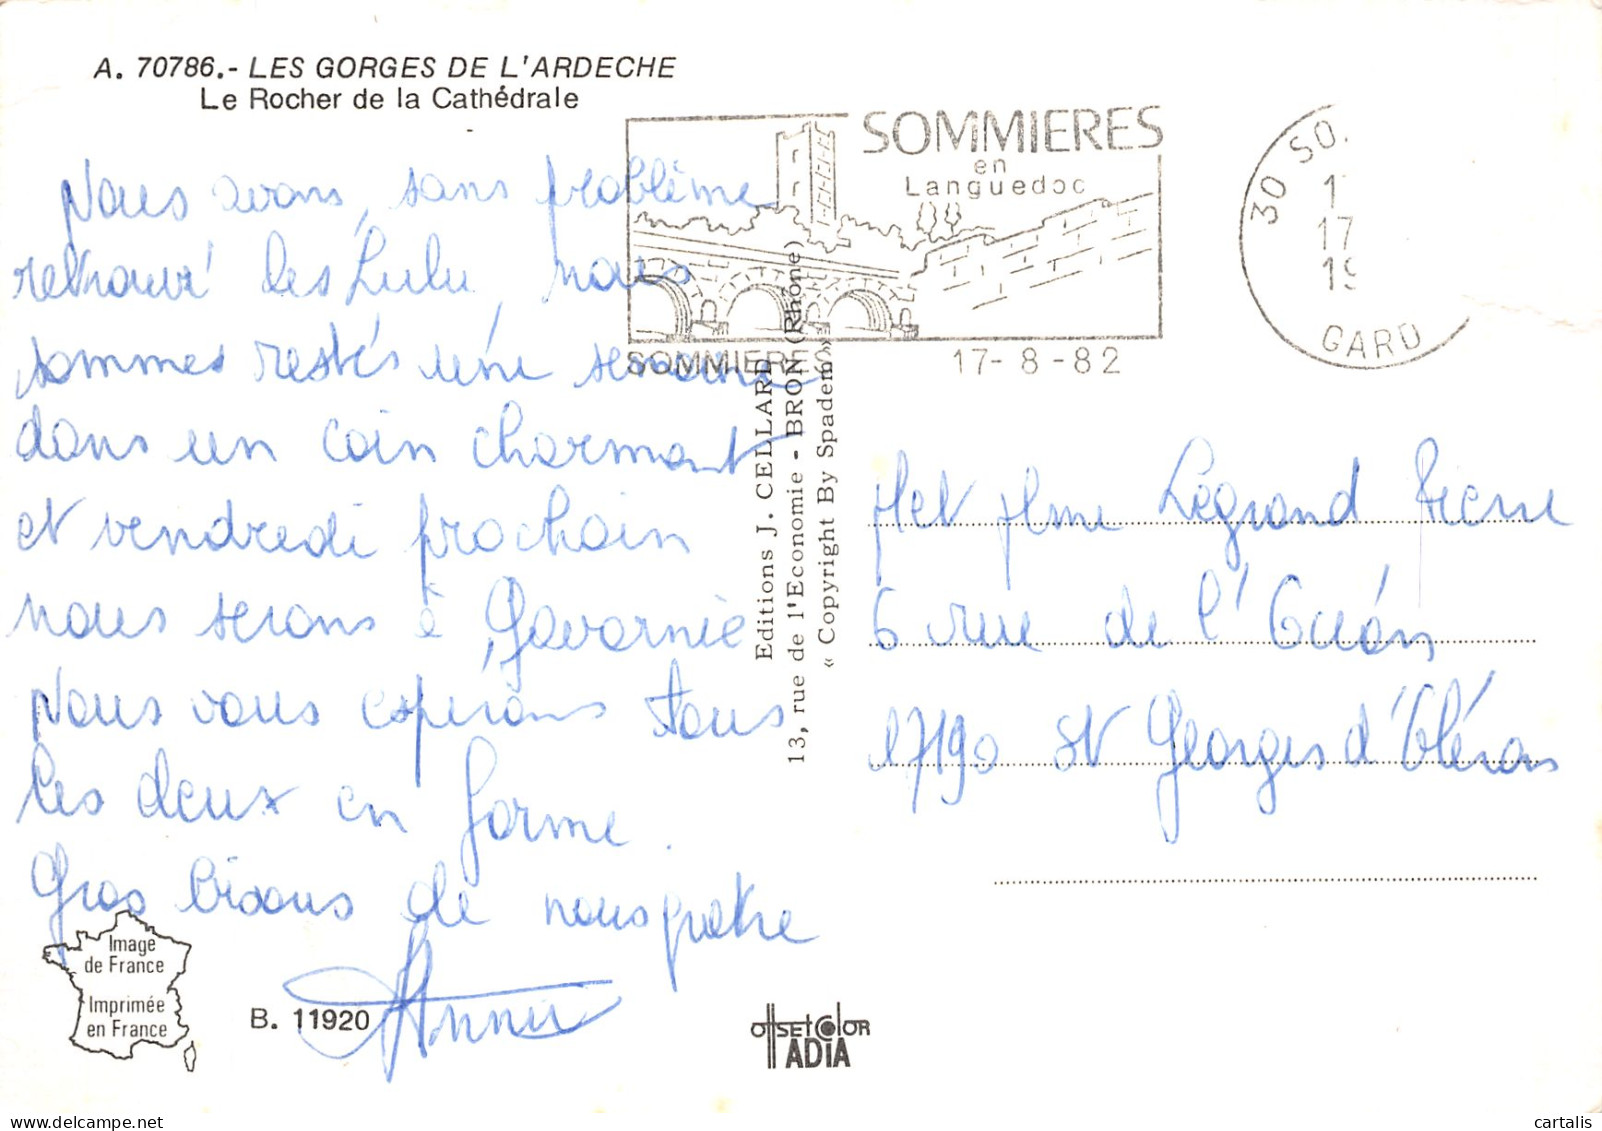 A. 70786.- LES GORGES DE L'ARDECHE
Le Rocher de la Cathédrale
SOMMIERES
en
Languedoc
SOMMIERES 17-8-82
30 SO.
17
19
GARD
Nous avons, sans problème
retrouvé les Lulu, nous
sommes restés une semaine
dans un coin charmant
et vendredi prochain
nous serons à Gavarnie
Nous vous espérons tous
les deux en forme.
Gros bisous de nous quatre
Annie
Editions J. CELLARD
13, rue de l'Economie - BRON (Rhône)
« Copyright By Spadem »
M et Mme Legrand Pierre
6 rue de l'Océan
17190 St Georges d'Oléron
Image
de France
Imprimée
en France
B. 11920
OFFSET COLOR
ADIA